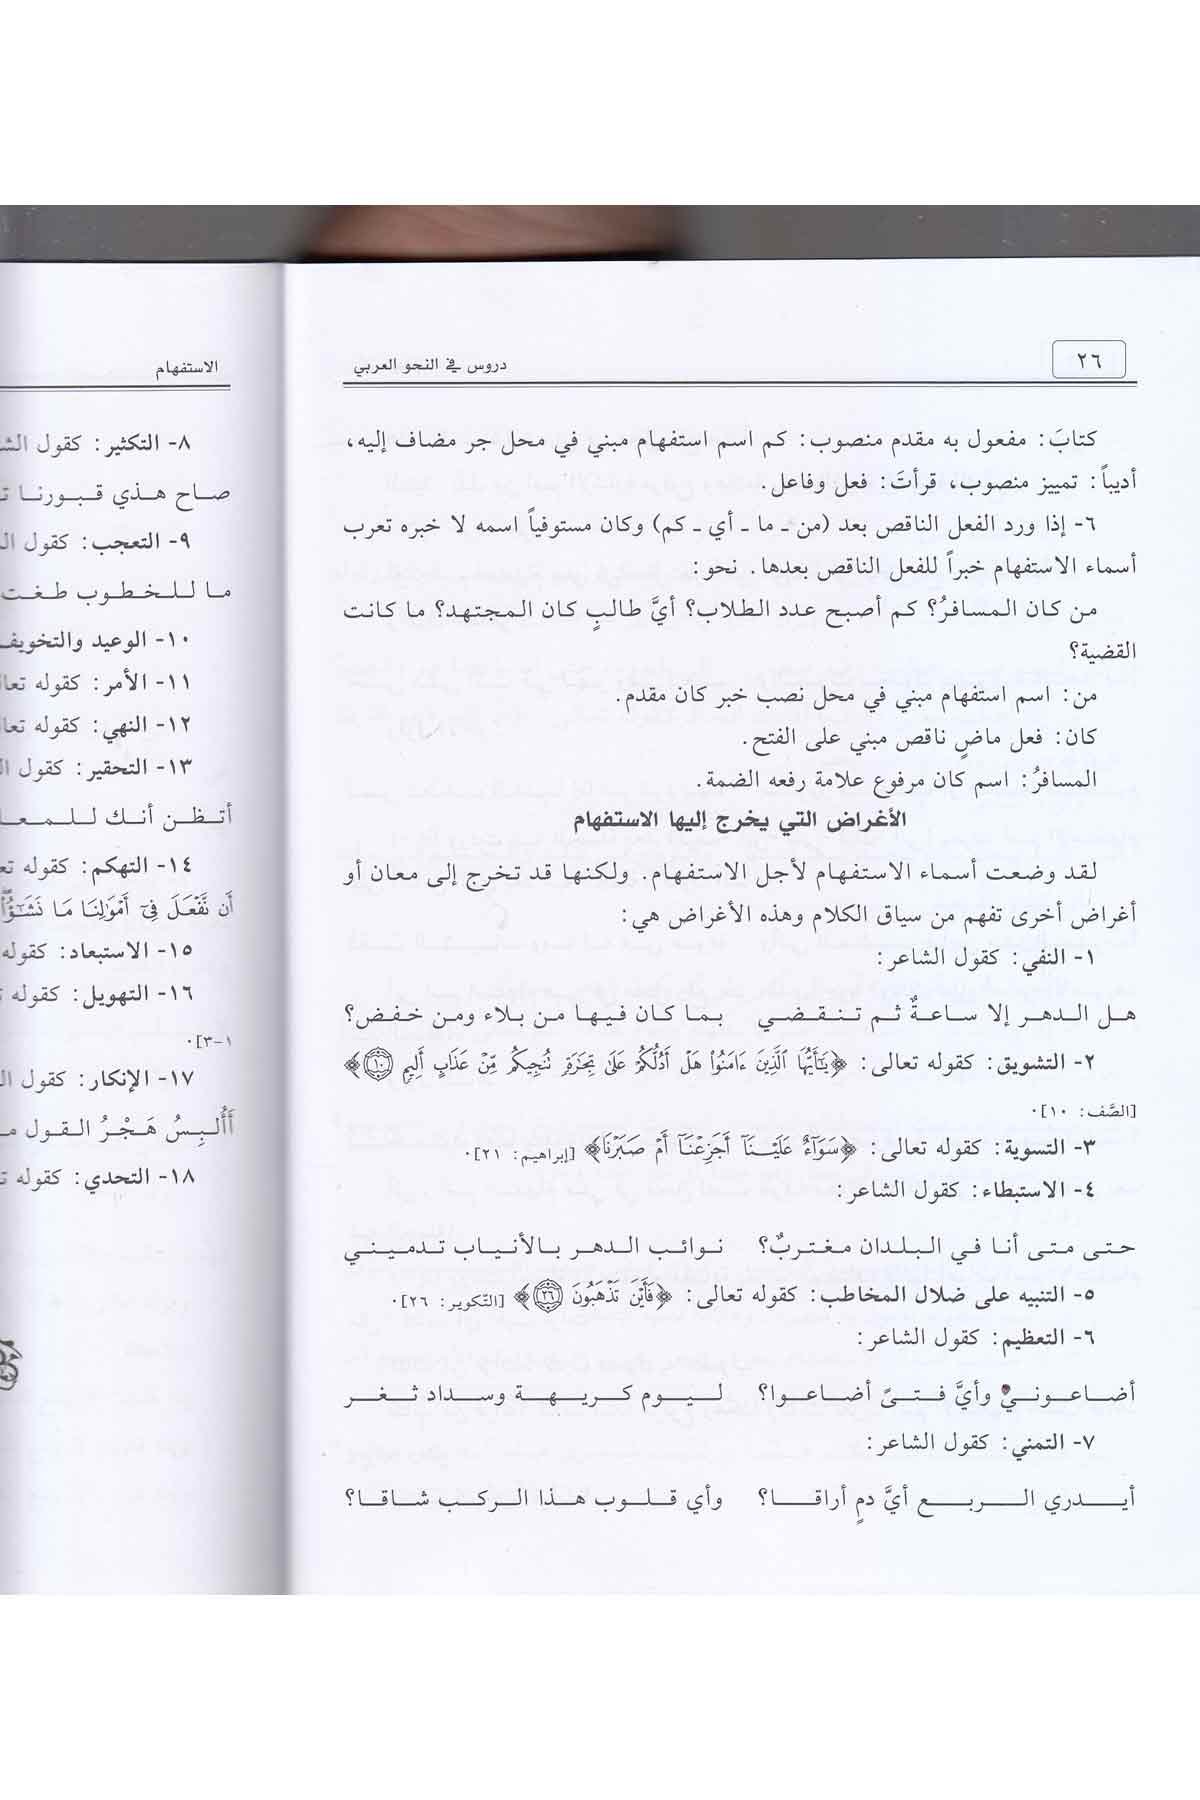 ٢٦
دروس في النحو العربي
كتابَ: مفعول به مقدم منصوب: كم اسم استفهام مبني في محل جر مضاف إليه،
أديباً: تمييز منصوب، قرأتَ: فعل وفاعل.
٦- إذا ورد الفعل الناقص بعد (من ـ ما ـ أي ـ كم) وكان مستوفياً اسمه لا خبره تعرب
أسماء الاستفهام خبراً للفعل الناقص بعدها. نحو:
من كان المسافرُ؟ كم أصبح عدد الطلاب؟ أيَّ طالبٍ كان المجتهد؟ ما كانت
القضية؟
من: اسم استفهام مبني في محل نصب خبر كان مقدم.
كان: فعل ماضٍ ناقص مبني على الفتح.
المسافرُ: اسم كان مرفوع علامة رفعه الضمة.
الأغراض التي يخرج إليها الاستفهام
لقد وضعت أسماء الاستفهام لأجل الاستفهام. ولكنها قد تخرج إلى معان أو
أغراض أخرى تفهم من سياق الكلام وهذه الأغراض هي:
١- النفي: كقول الشاعر:
هل الدهر إلا ساعةٌ ثم تنقضي بما كان فيها من بلاء ومن خفض؟
٢- التشويق: كقوله تعالى: ﴿يَٰٓأَيُّهَا ٱلَّذِينَ ءَامَنُوا۟ هَلْ أَدُلُّكُمْ عَلَىٰ تِجَٰرَةٍ تُنجِيكُم مِّنْ عَذَابٍ أَلِيمٍ ۝١٠﴾
[الصَّف: ١٠].
٣- التسوية: كقوله تعالى: ﴿سَوَآءٌ عَلَيْنَآ أَجَزِعْنَآ أَمْ صَبَرْنَا﴾ [إبراهيم: ٢١].
٤- الاستبطاء: كقول الشاعر:
حتى متى أنا في البلدان مغتربٌ؟ نوائب الدهر بالأنياب تدميني
٥- التنبيه على ضلال المخاطب: كقوله تعالى: ﴿فَأَيْنَ تَذْهَبُونَ ۝٢٦﴾ [التّكوير: ٢٦].
٦- التعظيم: كقول الشاعر:
أضاعوني وأيَّ فتىً أضاعوا؟ ليوم كريهة وسداد ثغر
٧- التمني: كقول الشاعر:
أيدري الربع أيَّ دمٍ أراقا؟ وأي قلوب هذا الركب شاقا؟
الاستفهام
٨- التكثير: كقول
صاح هذي قبورنا
٩- التعجب: كقول
ما للخطوب طغت
١٠- الوعيد والتخويف
١١- الأمر: كقوله
١٢- النهي: كقوله
١٣- التحقير: كقول
أتظن أنك
١٤- التهكم: كقوله
أَن نَّفْعَلَ فِىٓ أَمْوَٰلِنَا مَا نَشَٰٓؤُا۟
١٥- الاستبعاد: كقوله
١٦- التهويل: كقوله
١-٣].
١٧- الإنكار: كقول
أَأُلبِسُ هَجْرُ القول
١٨- التحدي: كقوله